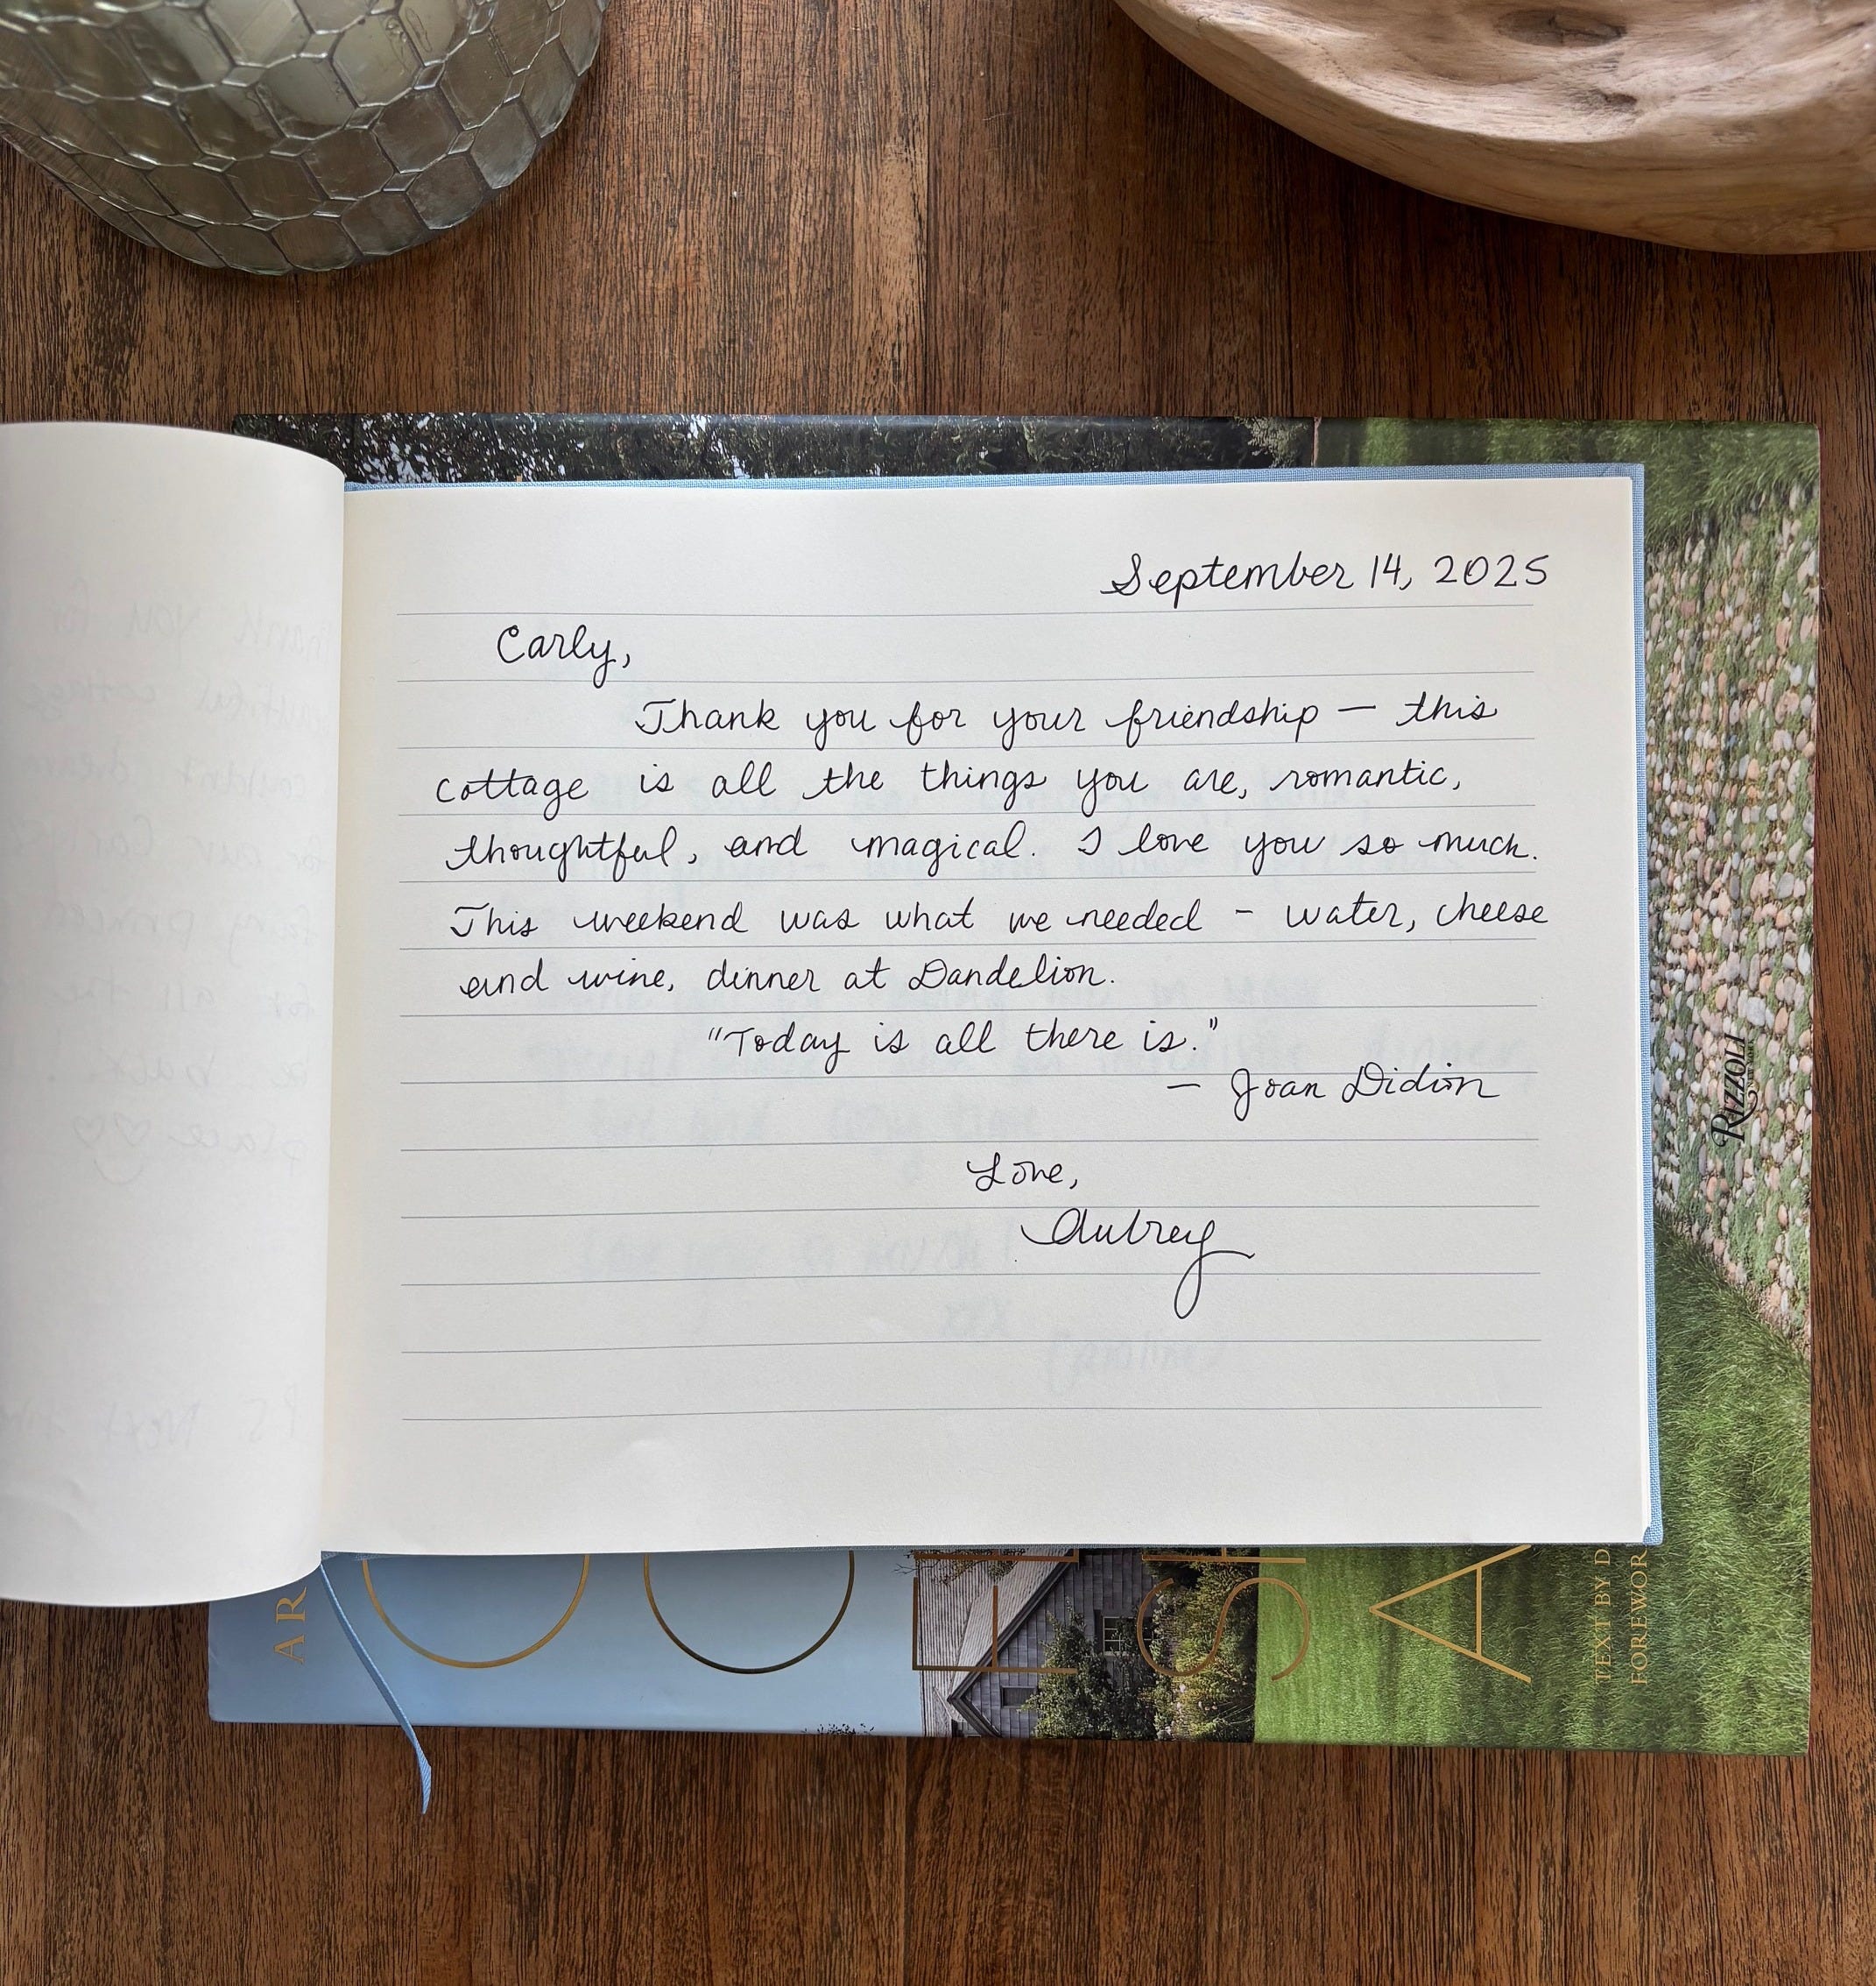 September 14, 2025
Carly,
Thank you for your friendship — this
cottage is all the things you are, romantic,
thoughtful, and magical. I love you so much.
This weekend was what we needed - water, cheese
and wine, dinner at Dandelion.
"Today is all there is."
— Joan Didion
Love,
Aubrey
RIZZOLI
AR
TEXT BY D
FOREWOR